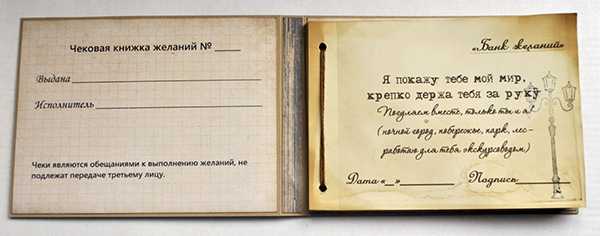 Чековая книжка желаний № ____
Выдана
Исполнитель
Чеки являются обещаниями к выполнению желаний, не
подлежат передаче третьему лицу.
«Банк желаний»
Я покажу тебе мой мир,
крепко держа тебя за руку
Погуляем вместе, только ты и я!
(ночной город, побережье, парк, лес-
работаю для тебя экскурсоводом)
Дата «__» __________ Подпись __________